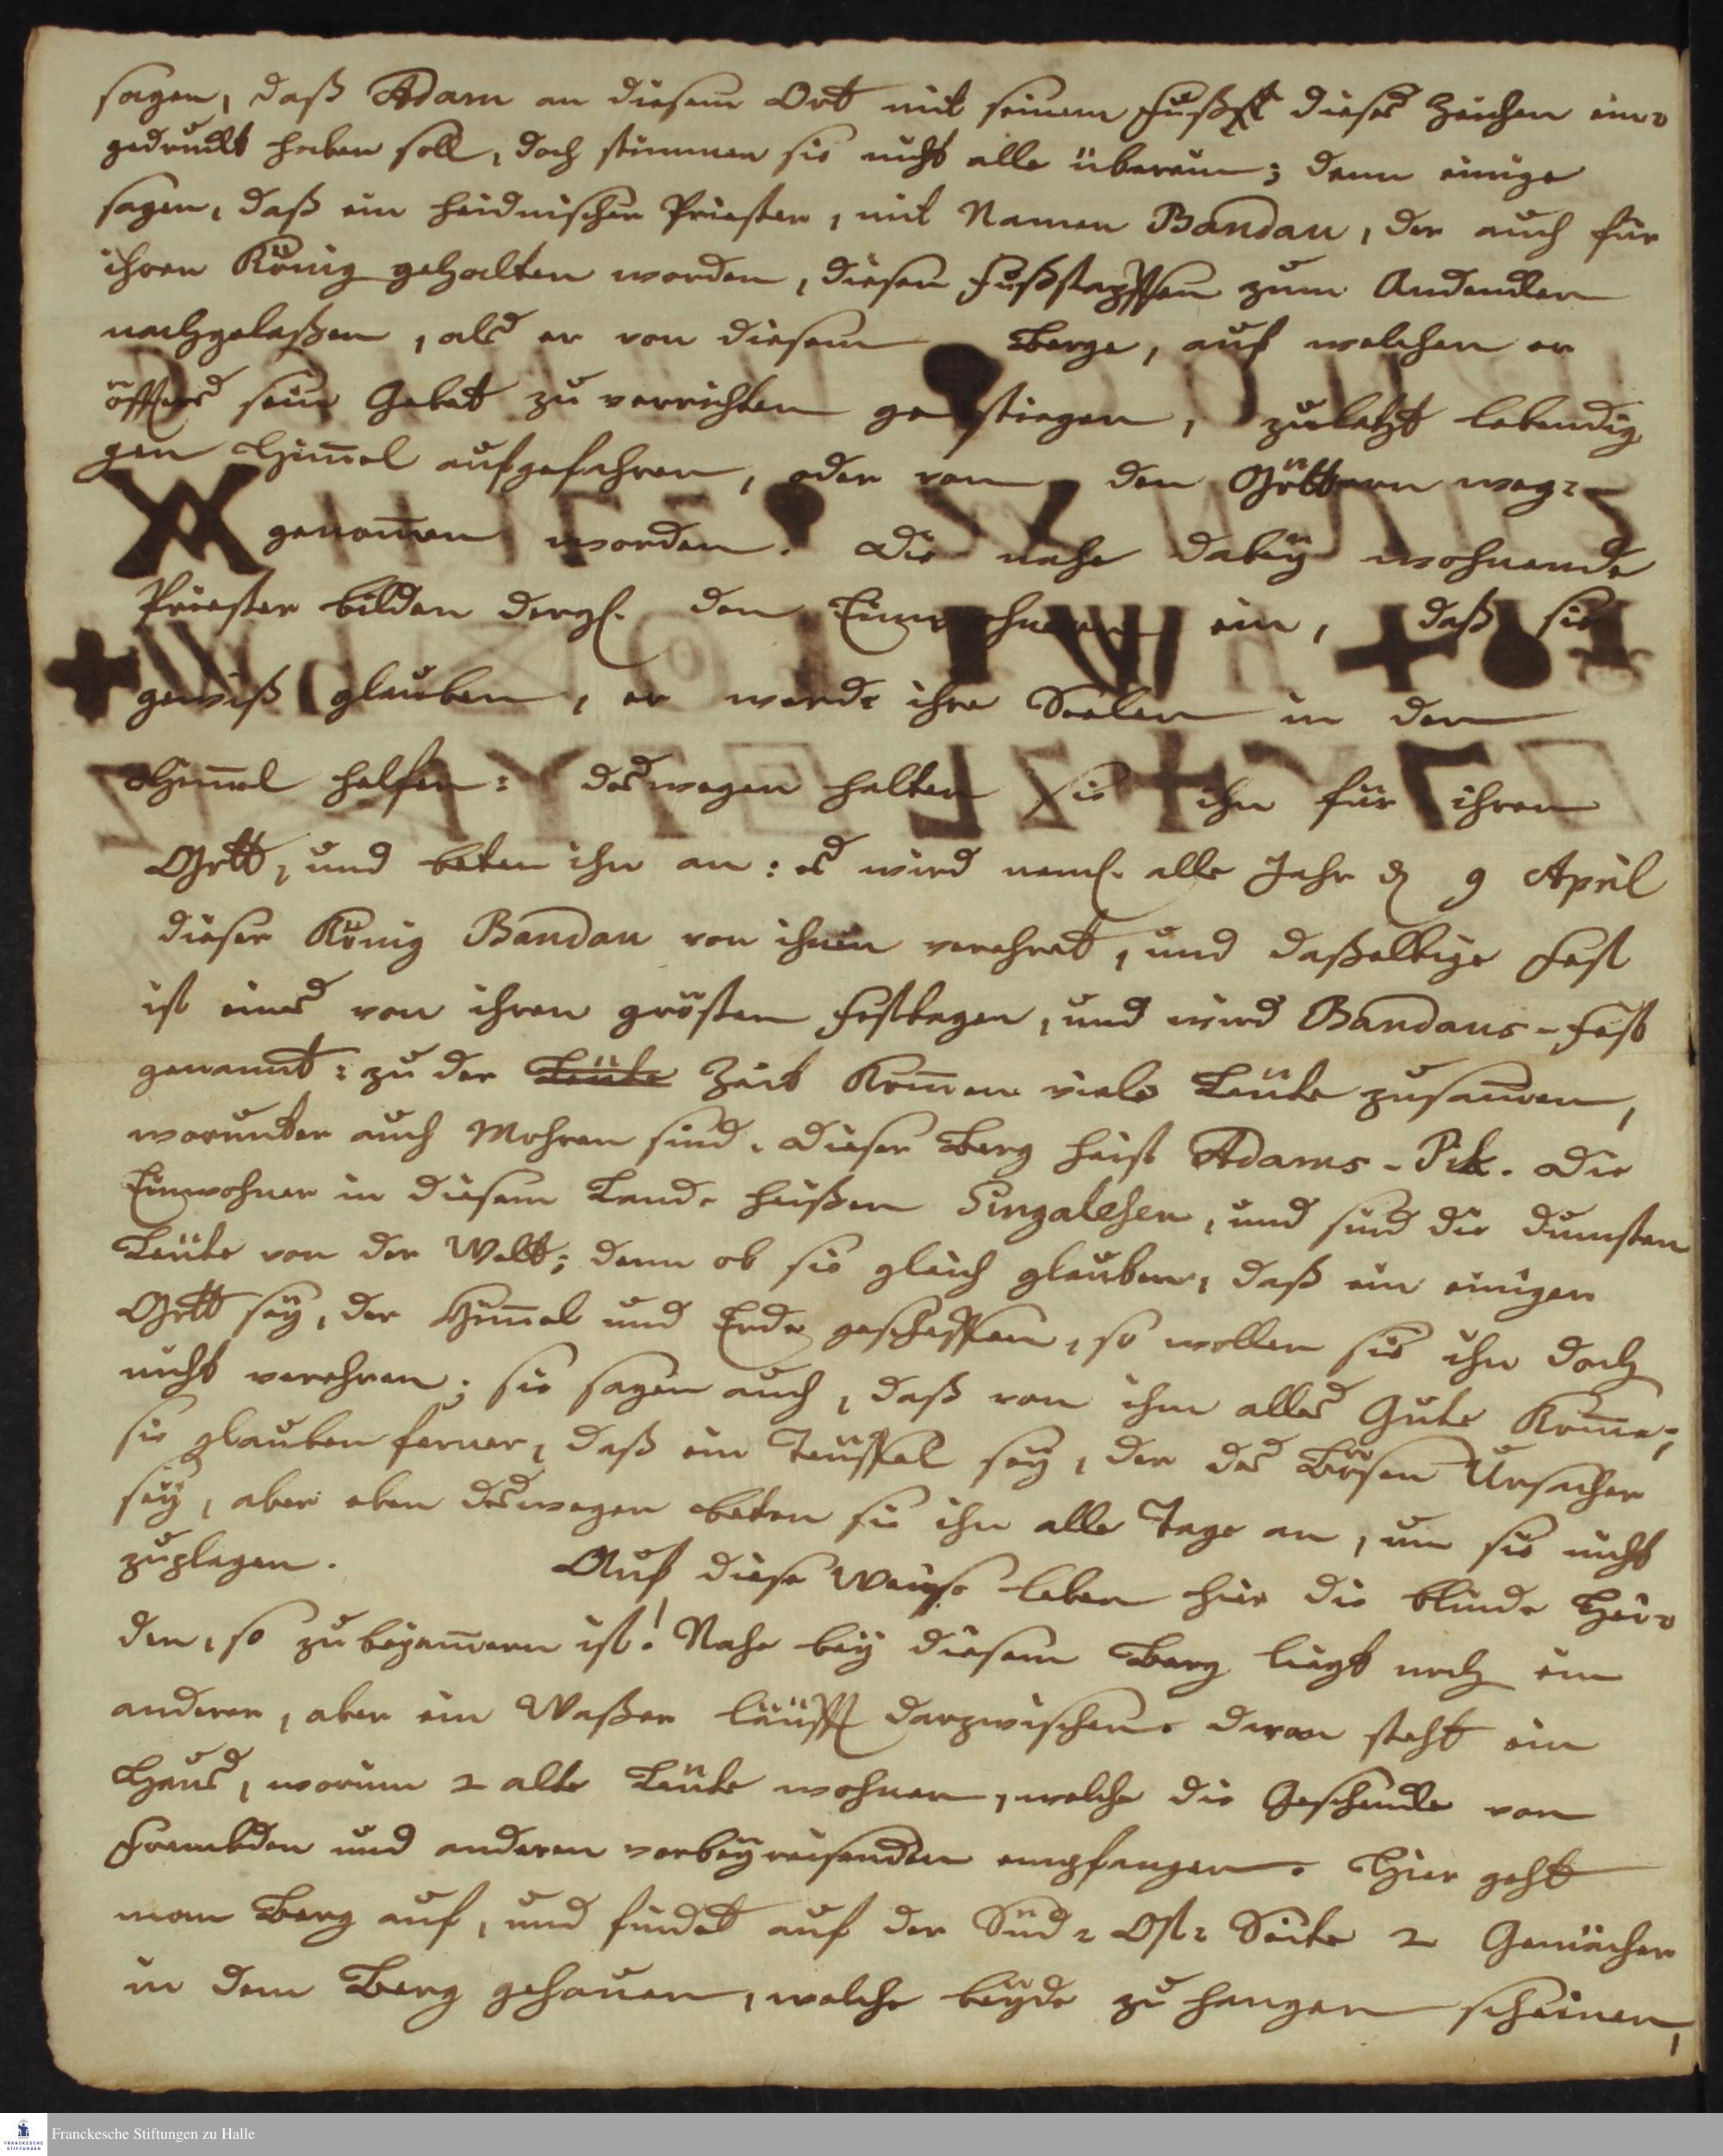 sagen, daß Adam an diesem Ort mit seinem Fuß dieses Zeichen ein-
gedruckt haben soll, doch stimmen sie nicht alle überein; denn einige
sagen, daß ein heidnischer Priester, mit Namen Bandau, der auch für
ihren König gehalten worden, diesen Fußstapffen zum Andencken
nachgelaßen, als er von diesem Berge, auf welchen er
öffters sein Gebet zu verrichten gestiegen, zuletzt lebendig
gen Him̄el aufgefahren, oder von den Göttern weg-
genom̄en worden. Die nahe dabeÿ wohnende
Priester bilden dergl. den Einwohnern ein, daß sie
gewiß glauben, er werde ihre Seelen in den
Him̄el helfen: deswegen halten sie ihn für ihren
Gott, und beten ihn an: es wird neml. alle Jahr d 9 April
dieser König Bandau von ihnen verehret, und daßelbige Fest
ist eines von ihren grösten Festtagen, und wird Bandaus-Fest
genannt: zu der Leüte Zeit kom̄en viele Leüte zusam̄en,
worunter auch Mohren sind. Dieser Berg heist Adams-Pik. Die
Einwohner in diesem Lande heißen Singalesen, und sind die dumsten
Leüte von der Welt; denn ob sie gleich glauben, daß ein einiger
Gott seÿ, der Him̄el und Erde geschaffen, so wollen sie ihn doch
nicht verehren; sie sagen auch, daß von ihm alles Gute kom̄e;
sie glauben ferner, daß ein Teüffel seÿ, der des Bösen Ursacher
seÿ, aber eben deswegen beten sie ihn alle Tage an, um sie nicht
zuplagen. Auf diese Weise leben hier die blinde Hei-
den, so zu bejam̄ern ist! Nahe beÿ diesem Berg liegt noch ein
anderer, aber ein Waßer läüfft darzwischen. Daran steht ein
Haus, worinn 2 alte Leüte wohnen, welche die Geschencke von
Frembden und anderen vorbeÿreisenden empfangen. Hier geht
man Berg auf, und findet auf der Süd-Ost-Seite 2 Gemächer
in dem Berg gehauen, welche beÿde zu hangen scheinen,
Franckesche Stiftungen zu Halle